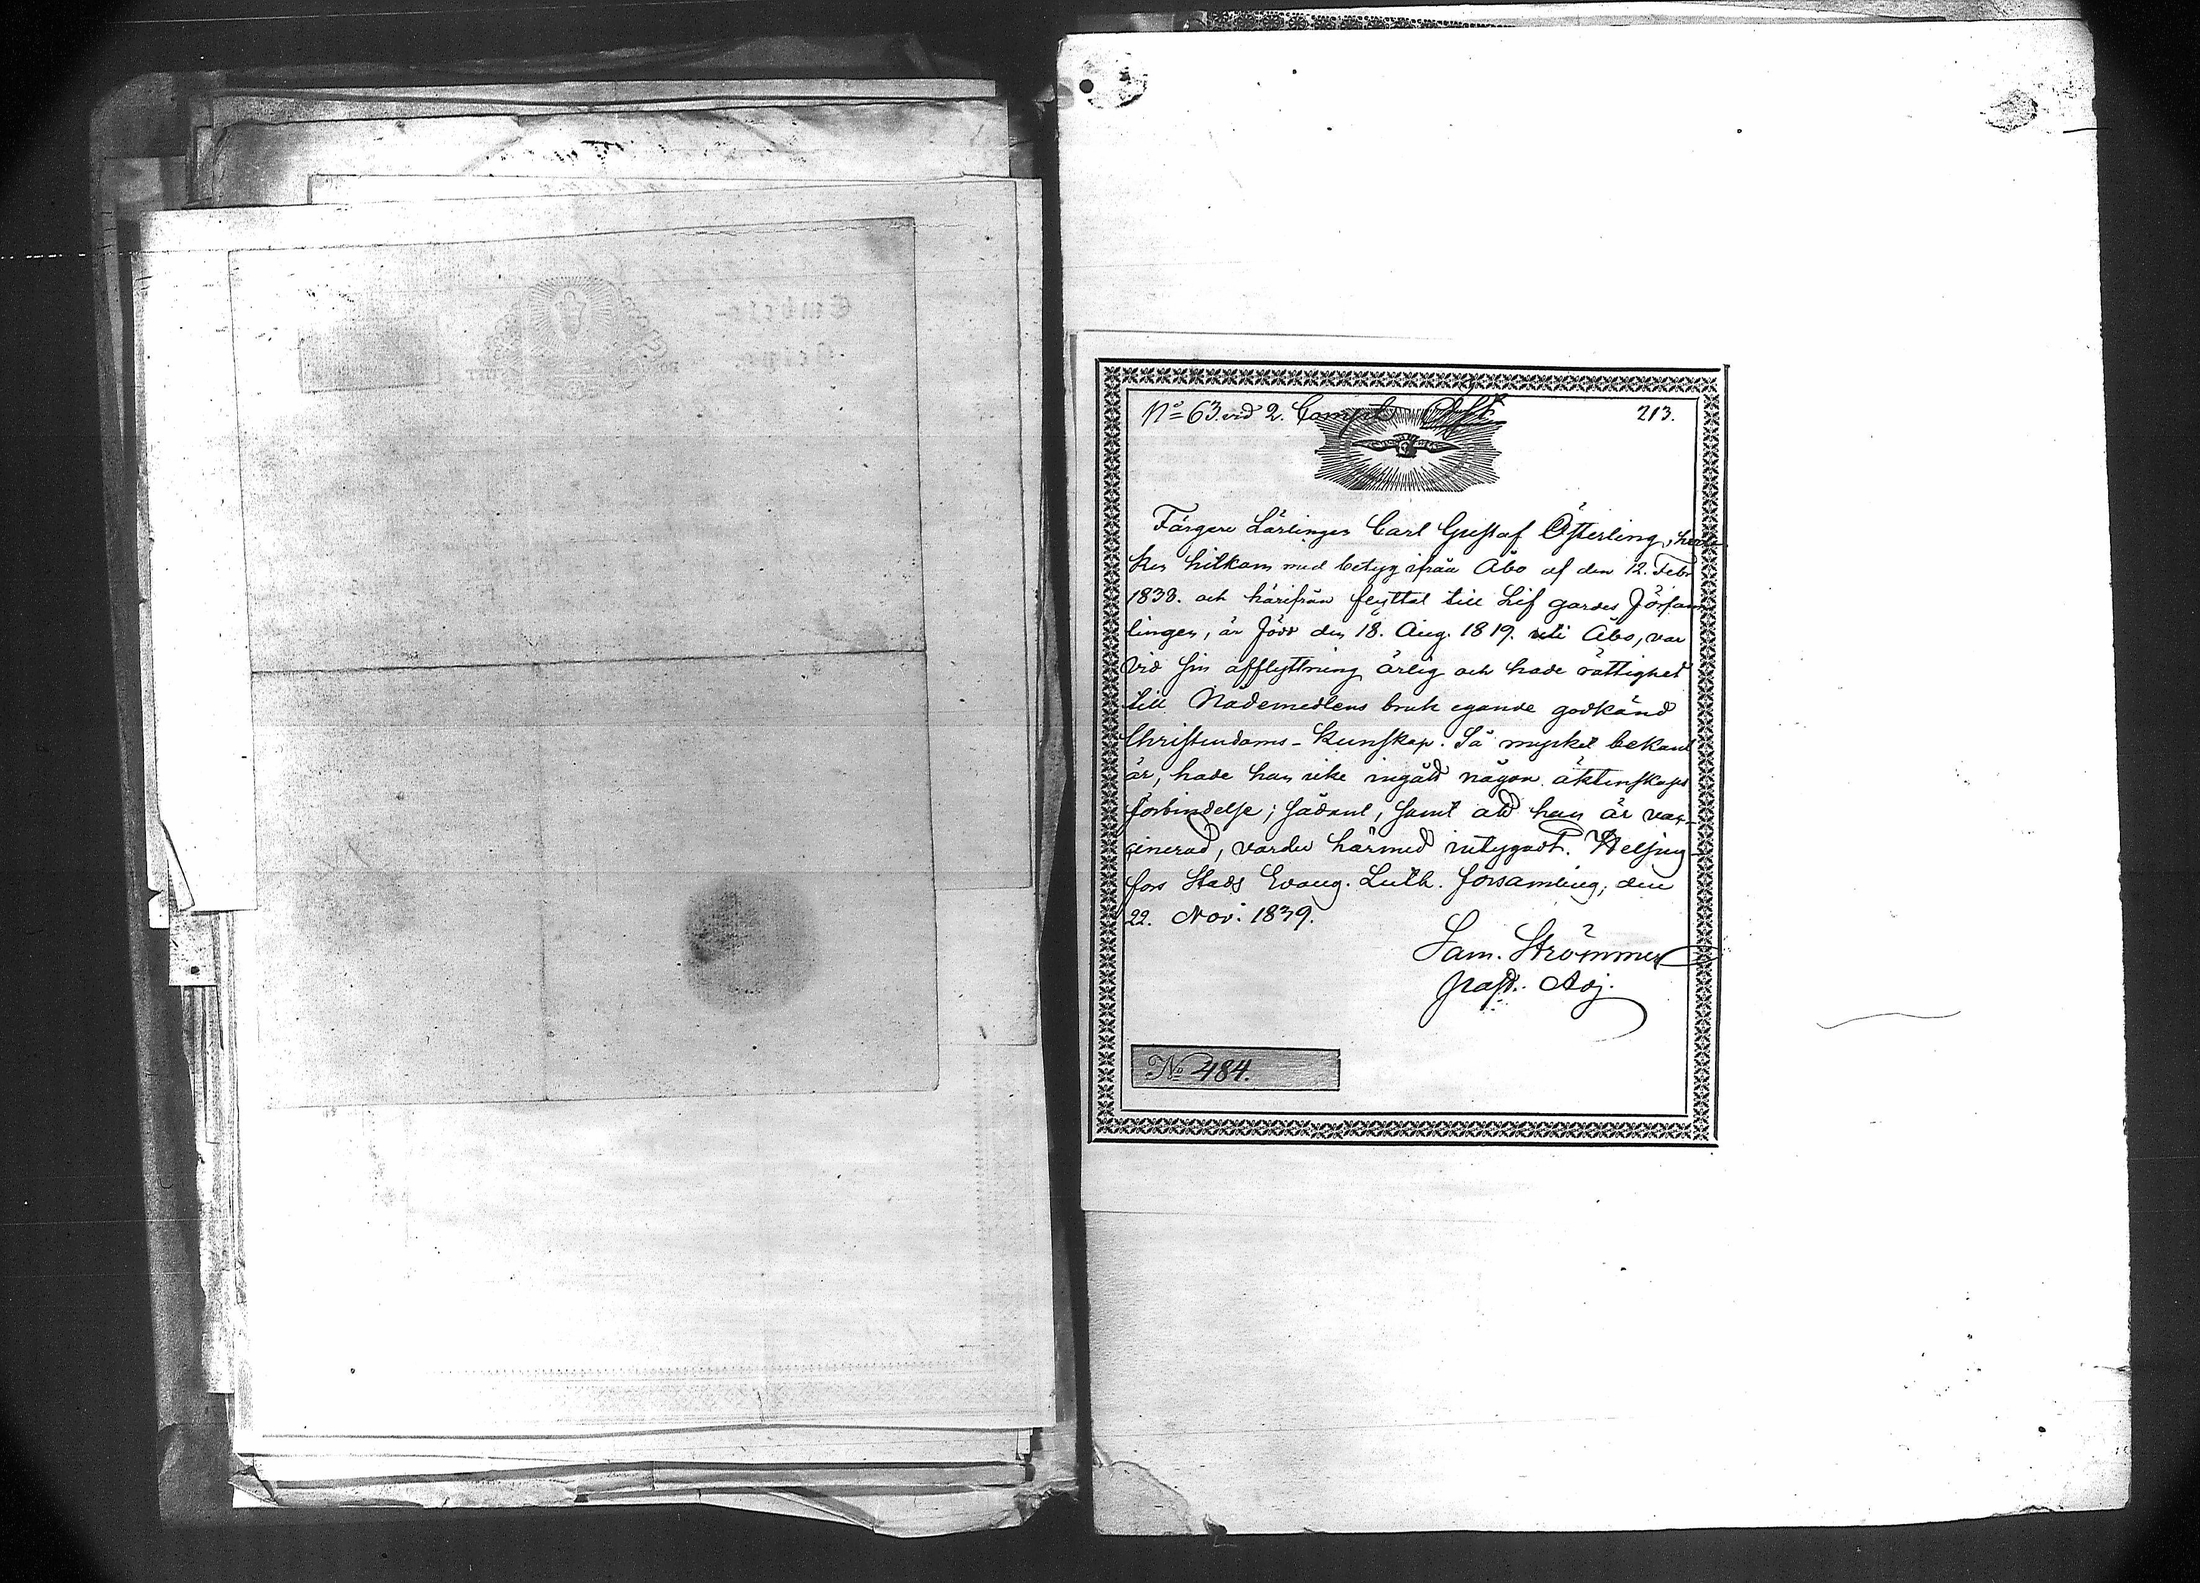 No 63. vid 2. Comp.
213.
Färgare Lärlingen Carl Gustaf Österling, hvil-
ken hitkom med betyg ifrån Åbo af den 12. Febr
1838. och härifrån flyttat till Lif gardes Försam
lingen, är född den 18. Aug. 1819. uti Åbo, var
vid sin afflyttning ärlig och hade rättighet
till Nådemedlens bruk egande godkänd
Christendoms-kunskap. Så mycket bekant
är, hade han icke ingått någon äktenskaps
förbindelse; sådant, samt att han är vac-
cinerad, varder härmed intygadt. Helsing-
fors Stads Evang. Luth. församling, den
22. Nov. 1839.
Sam. Strömmer
past. Adj.
No 484.